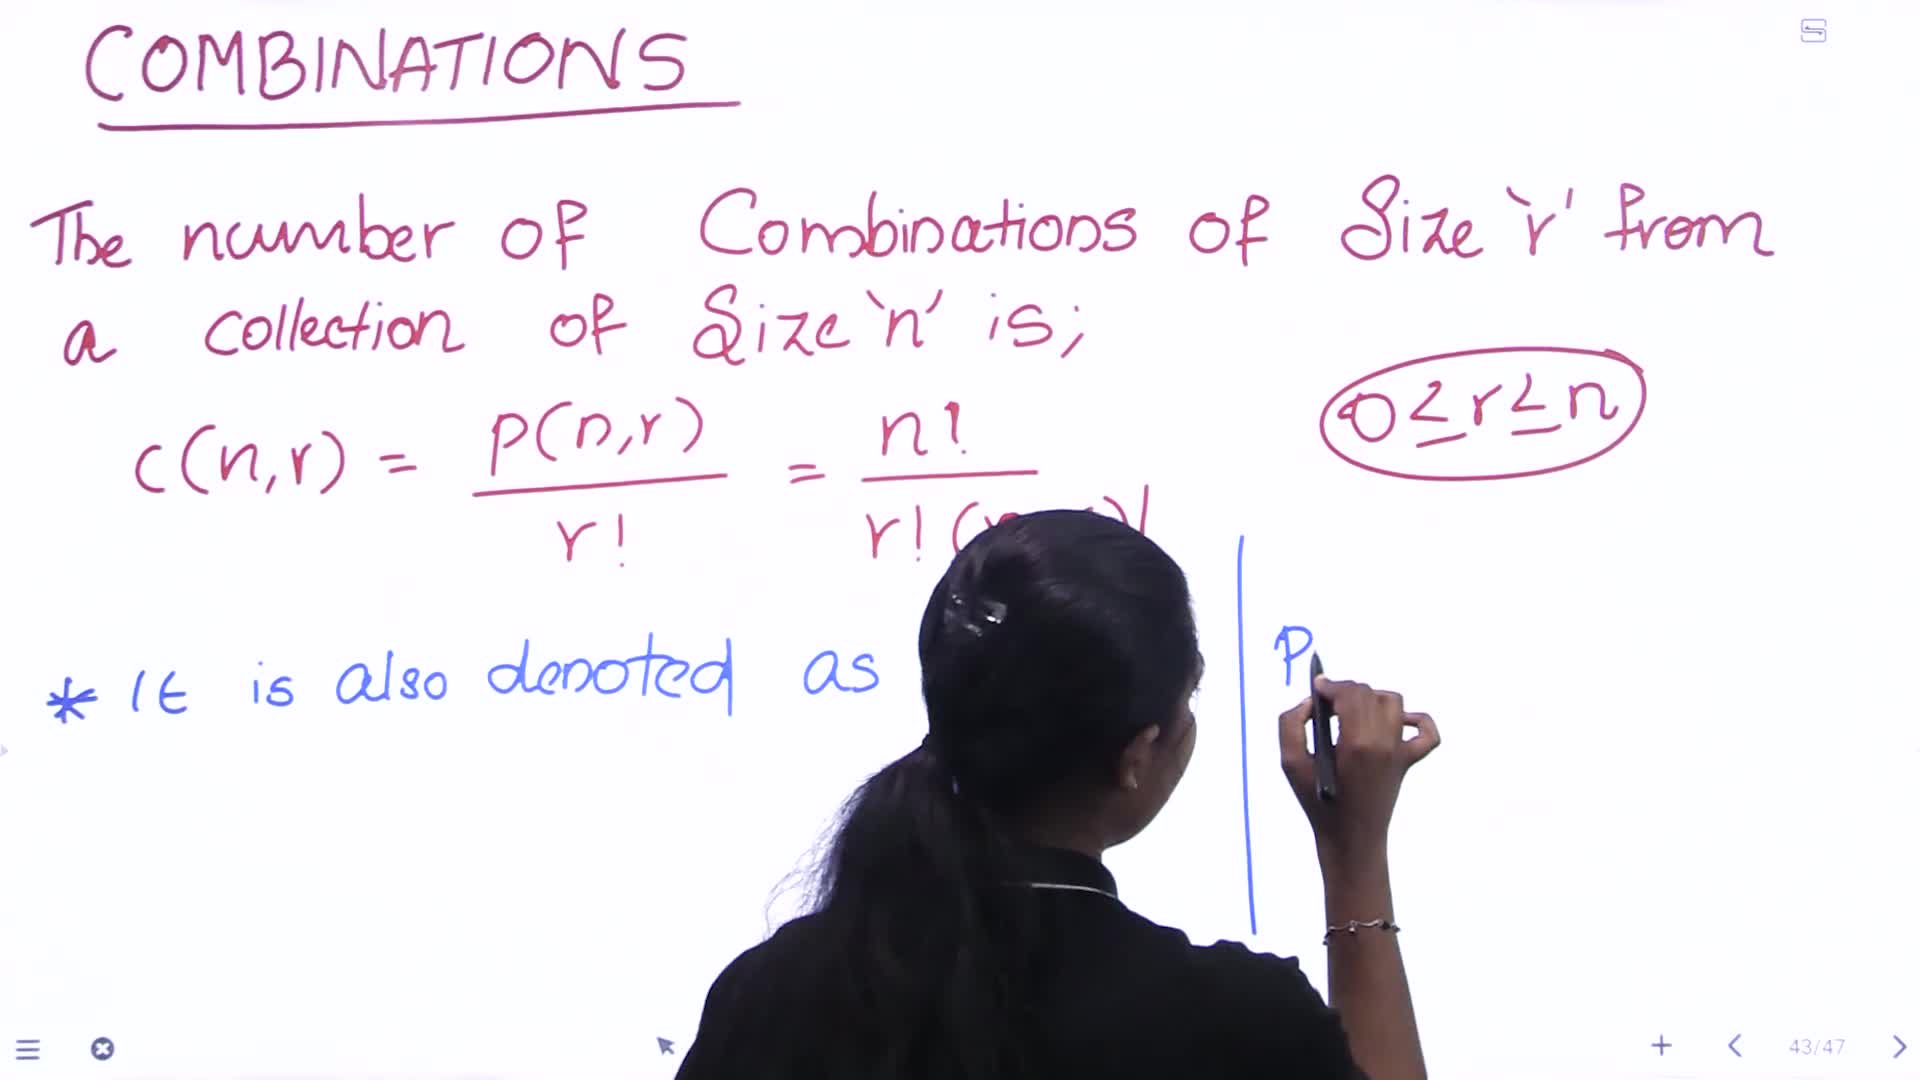 COMBINATIONS
The number of Combinations of Size `r' from
a collection of Size `n' is;
0 ≤ r ≤ n
c(n,r) = p(n,r) / r! = n! / r! (
* It is also denoted as
P
43/47